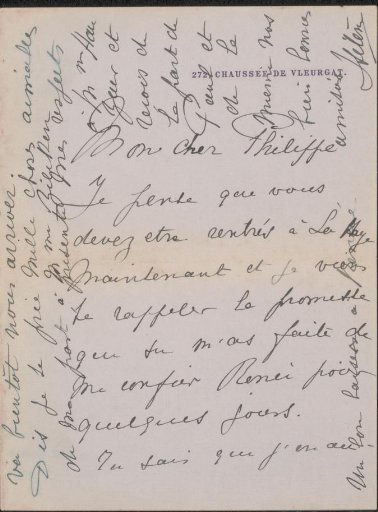 272, CHAUSSÉE DE VLEURGAT.
Mon cher Philippe
Je pense que vous
devez être rentrés à La Haye
maintenant et je viens
te rappeler la promesse
que tu m'as faite de
me confier Renée pour
quelques jours.
Tu sais que j'en au-
va bientôt nous arriver.
Dis je te prie mille choses aimables
de ma part à
présente mes respects
à M
reçois de
la part de
Paul et
de la
mienne nos
bien bonnes
amitiés
Un bon baiser à